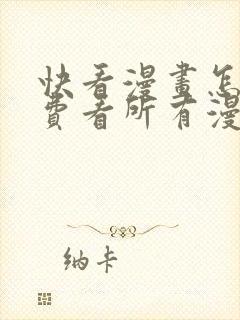 快看漫畫怎
費看所有漫
纳卡